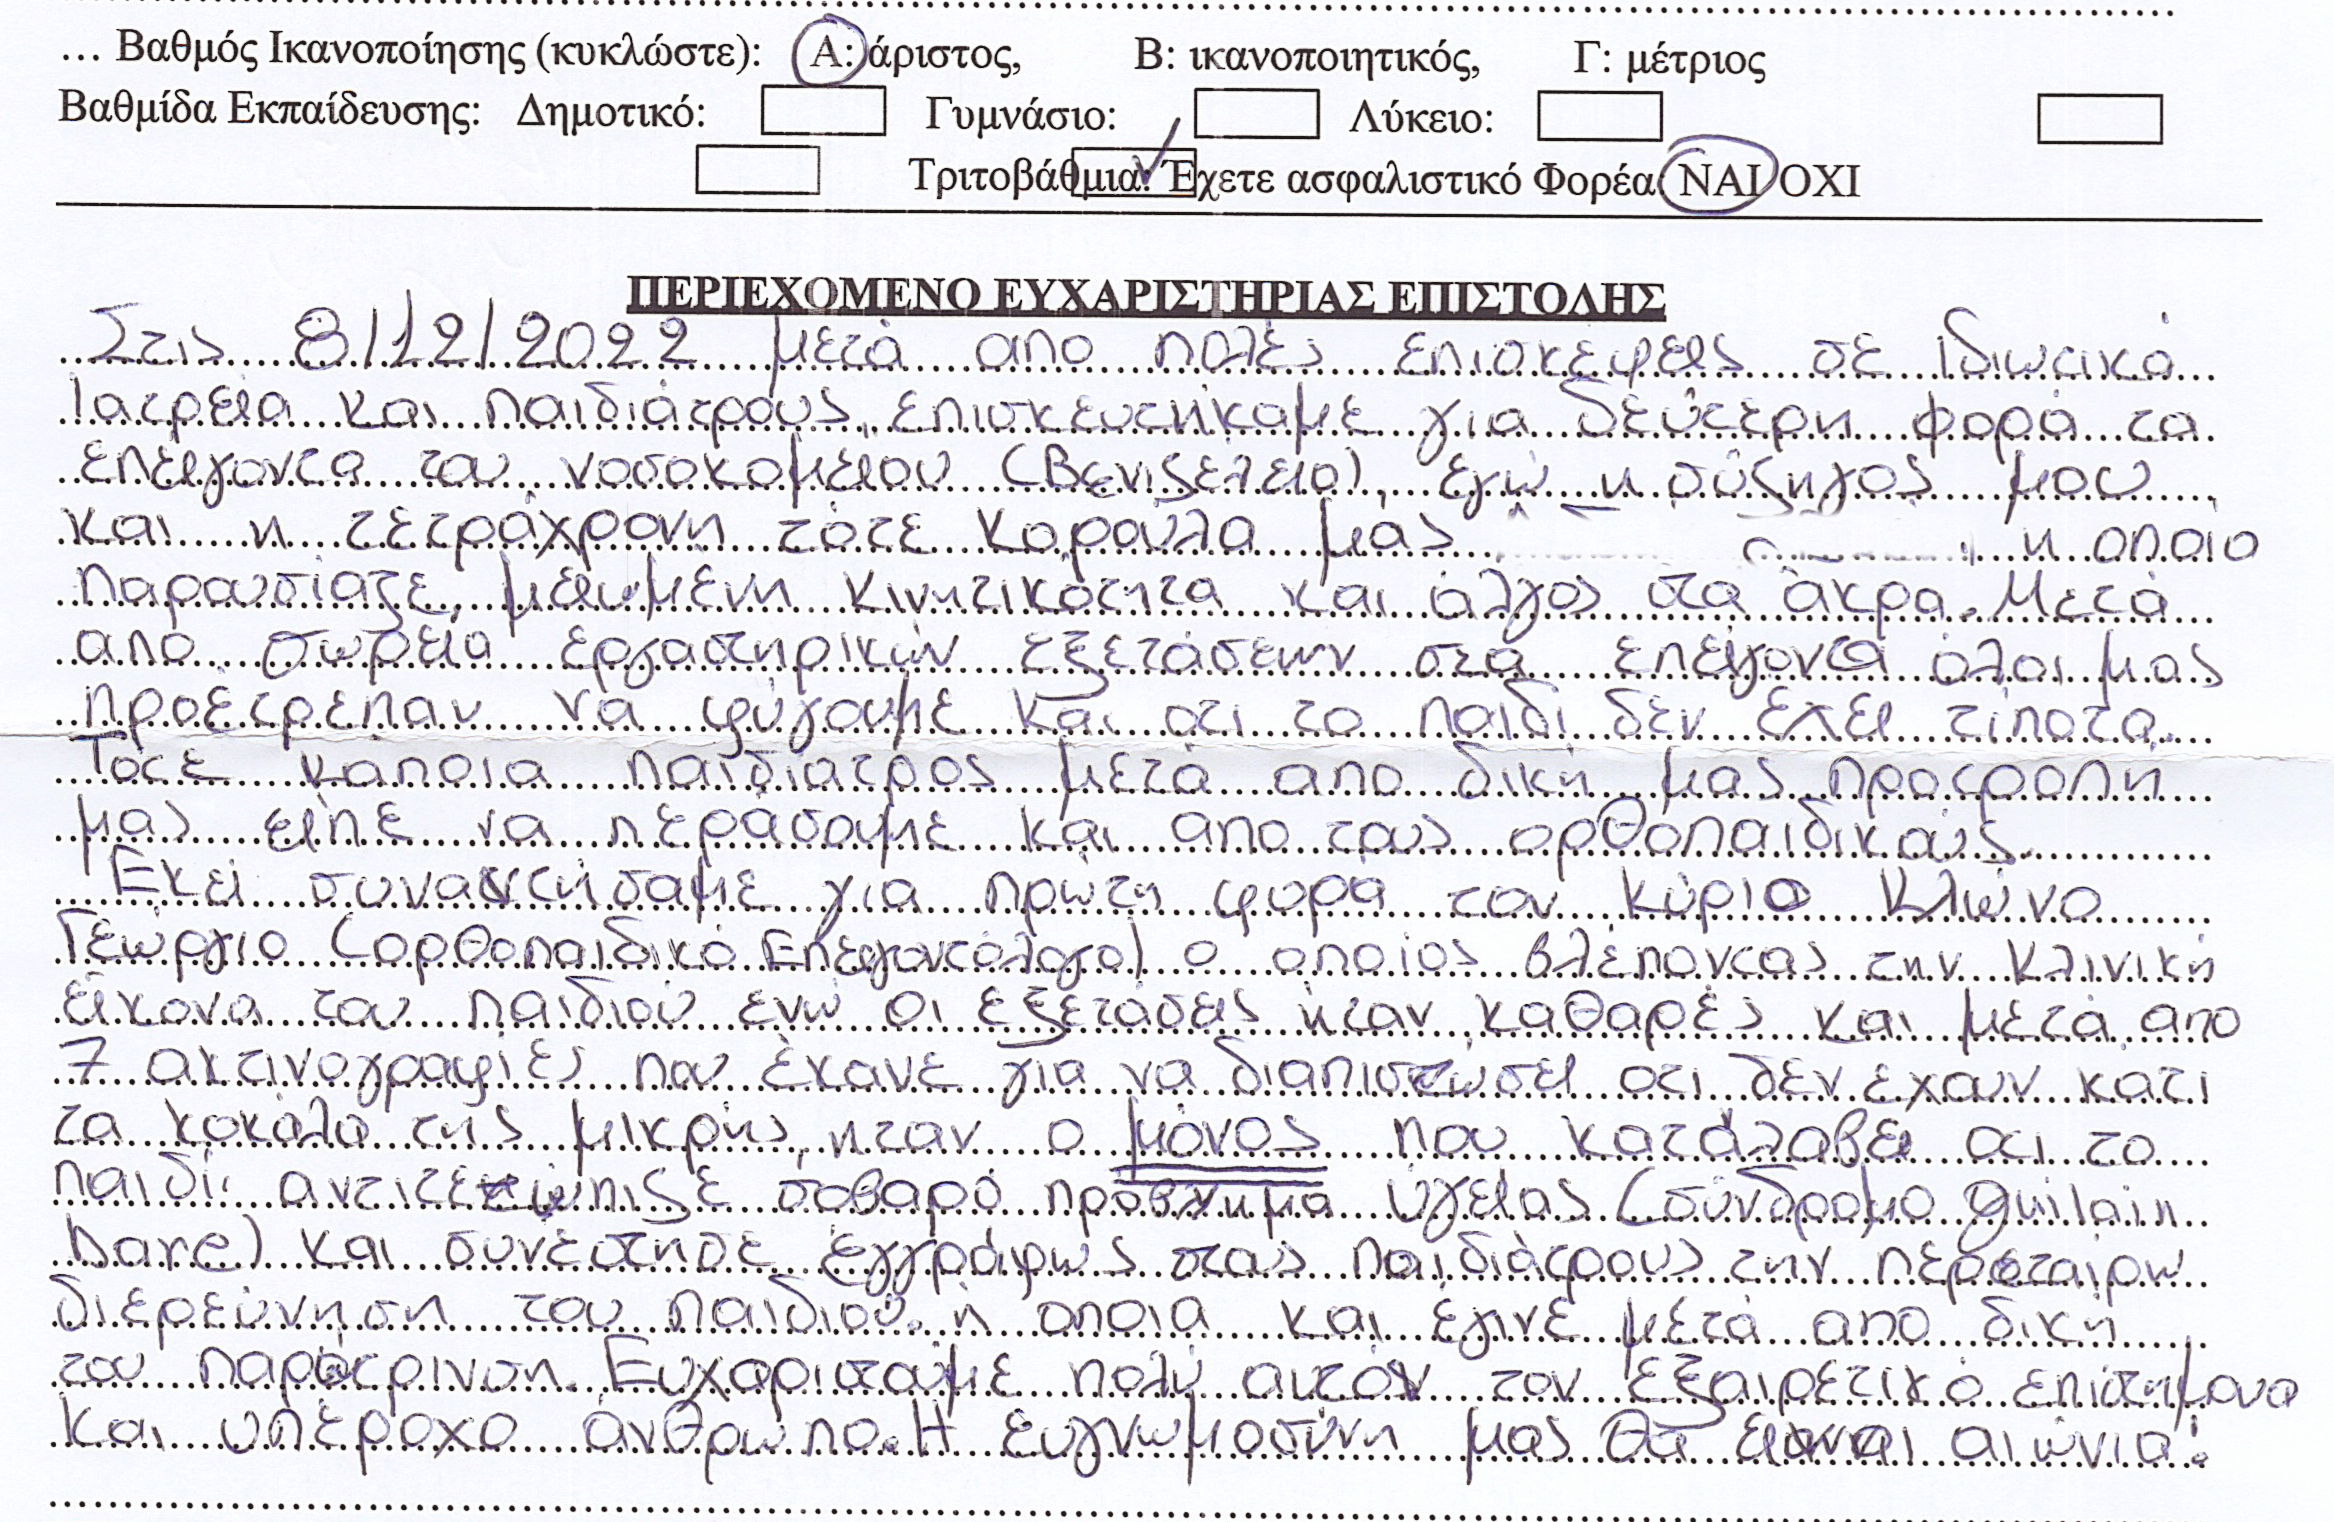 … Βαθμός Ικανοποίησης (κυκλώστε): Α: άριστος, Β: ικανοποιητικός, Γ: μέτριος
Βαθμίδα Εκπαίδευσης: Δημοτικό: Γυμνάσιο: Λύκειο:
Τριτοβάθμια: Έχετε ασφαλιστικό Φορέα ΝΑΙ ΟΧΙ
ΠΕΡΙΕΧΟΜΕΝΟ ΕΥΧΑΡΙΣΤΗΡΙΑΣ ΕΠΙΣΤΟΛΗΣ
Στις 8/12/2022 μετά απο πολές επισκέψεις σε Ιδιωτικά
Ιατρεία και παιδιάτρους, επισκευτήκαμε για δεύτερη φορά τα
επείγοντα του νοσοκομείου (Βενιζέλειο), εγώ η σύζηγός μου
και η τετράχρονη τότε κορούλα μας η οποίο
παρουσίαζε, μειωμένη κινητικότητα και άλγος στα άκρα. Μετά
απο σωρεία εργαστηρικών εξετάσεων στα επείγοντα όλοι μας
προέτρεπαν να φύγουμε και οτι το παιδί δεν έχει τίποτα.
Τότε κάποια παιδίατρος μετά απο δική μας προτροπή
μας είπε να περάσουμε και απο τους ορθοπαιδικούς.
Εκεί συναντήσαμε για πρώτη φορά τον κύριο Κλώνο
Γεώργιο (ορθοπαιδικό Επειγοντόλογο) ο οποίος βλέποντας την κλινική
εικονα του παιδιού ενώ οι εξετάσεις ήταν καθαρές και μετά απο
7 ακτινογραφίες που έκανε για να διαπιστώσει οτι δεν εχουν κατι
τα κοκαλα της μικρής, ηταν ο μόνος που κατάλαβε οτι το
παιδί αντιτετώπιζε σοβαρό πρόβλημα υγείας (σύνδρομο guilain
bare) και συνέστησε έγγράφως στους παιδιάτρους την περεταίρω
διερεύνηση του παιδιού. η οποια και έγινε μετά απο δική
του παρότρινση. Ευχαριστούμε πολύ αυτόν τον εξαιρετικό επιστήμονα
και υπέροχο άνθρωπο. Η ευγνωμοσύνη μας θα είναι αιώνια!